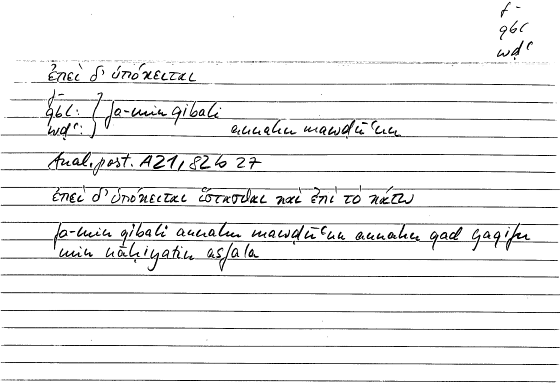 f-
qbl
wḍʿ
ἐπεὶ δ' ὑπόκειται
f-
qbl:
wḍʿ: } fa-min qibali
annahu mawḍūʿun
Anal. post. A21, 82b 27
ἐπεὶ δ' ὑπόκειται ἵστασθαι καὶ ἐπὶ τὸ κάτω
fa-min qibali annahu mawḍūʿun annahu qad yaqifu
min nāḥiyatin asfala